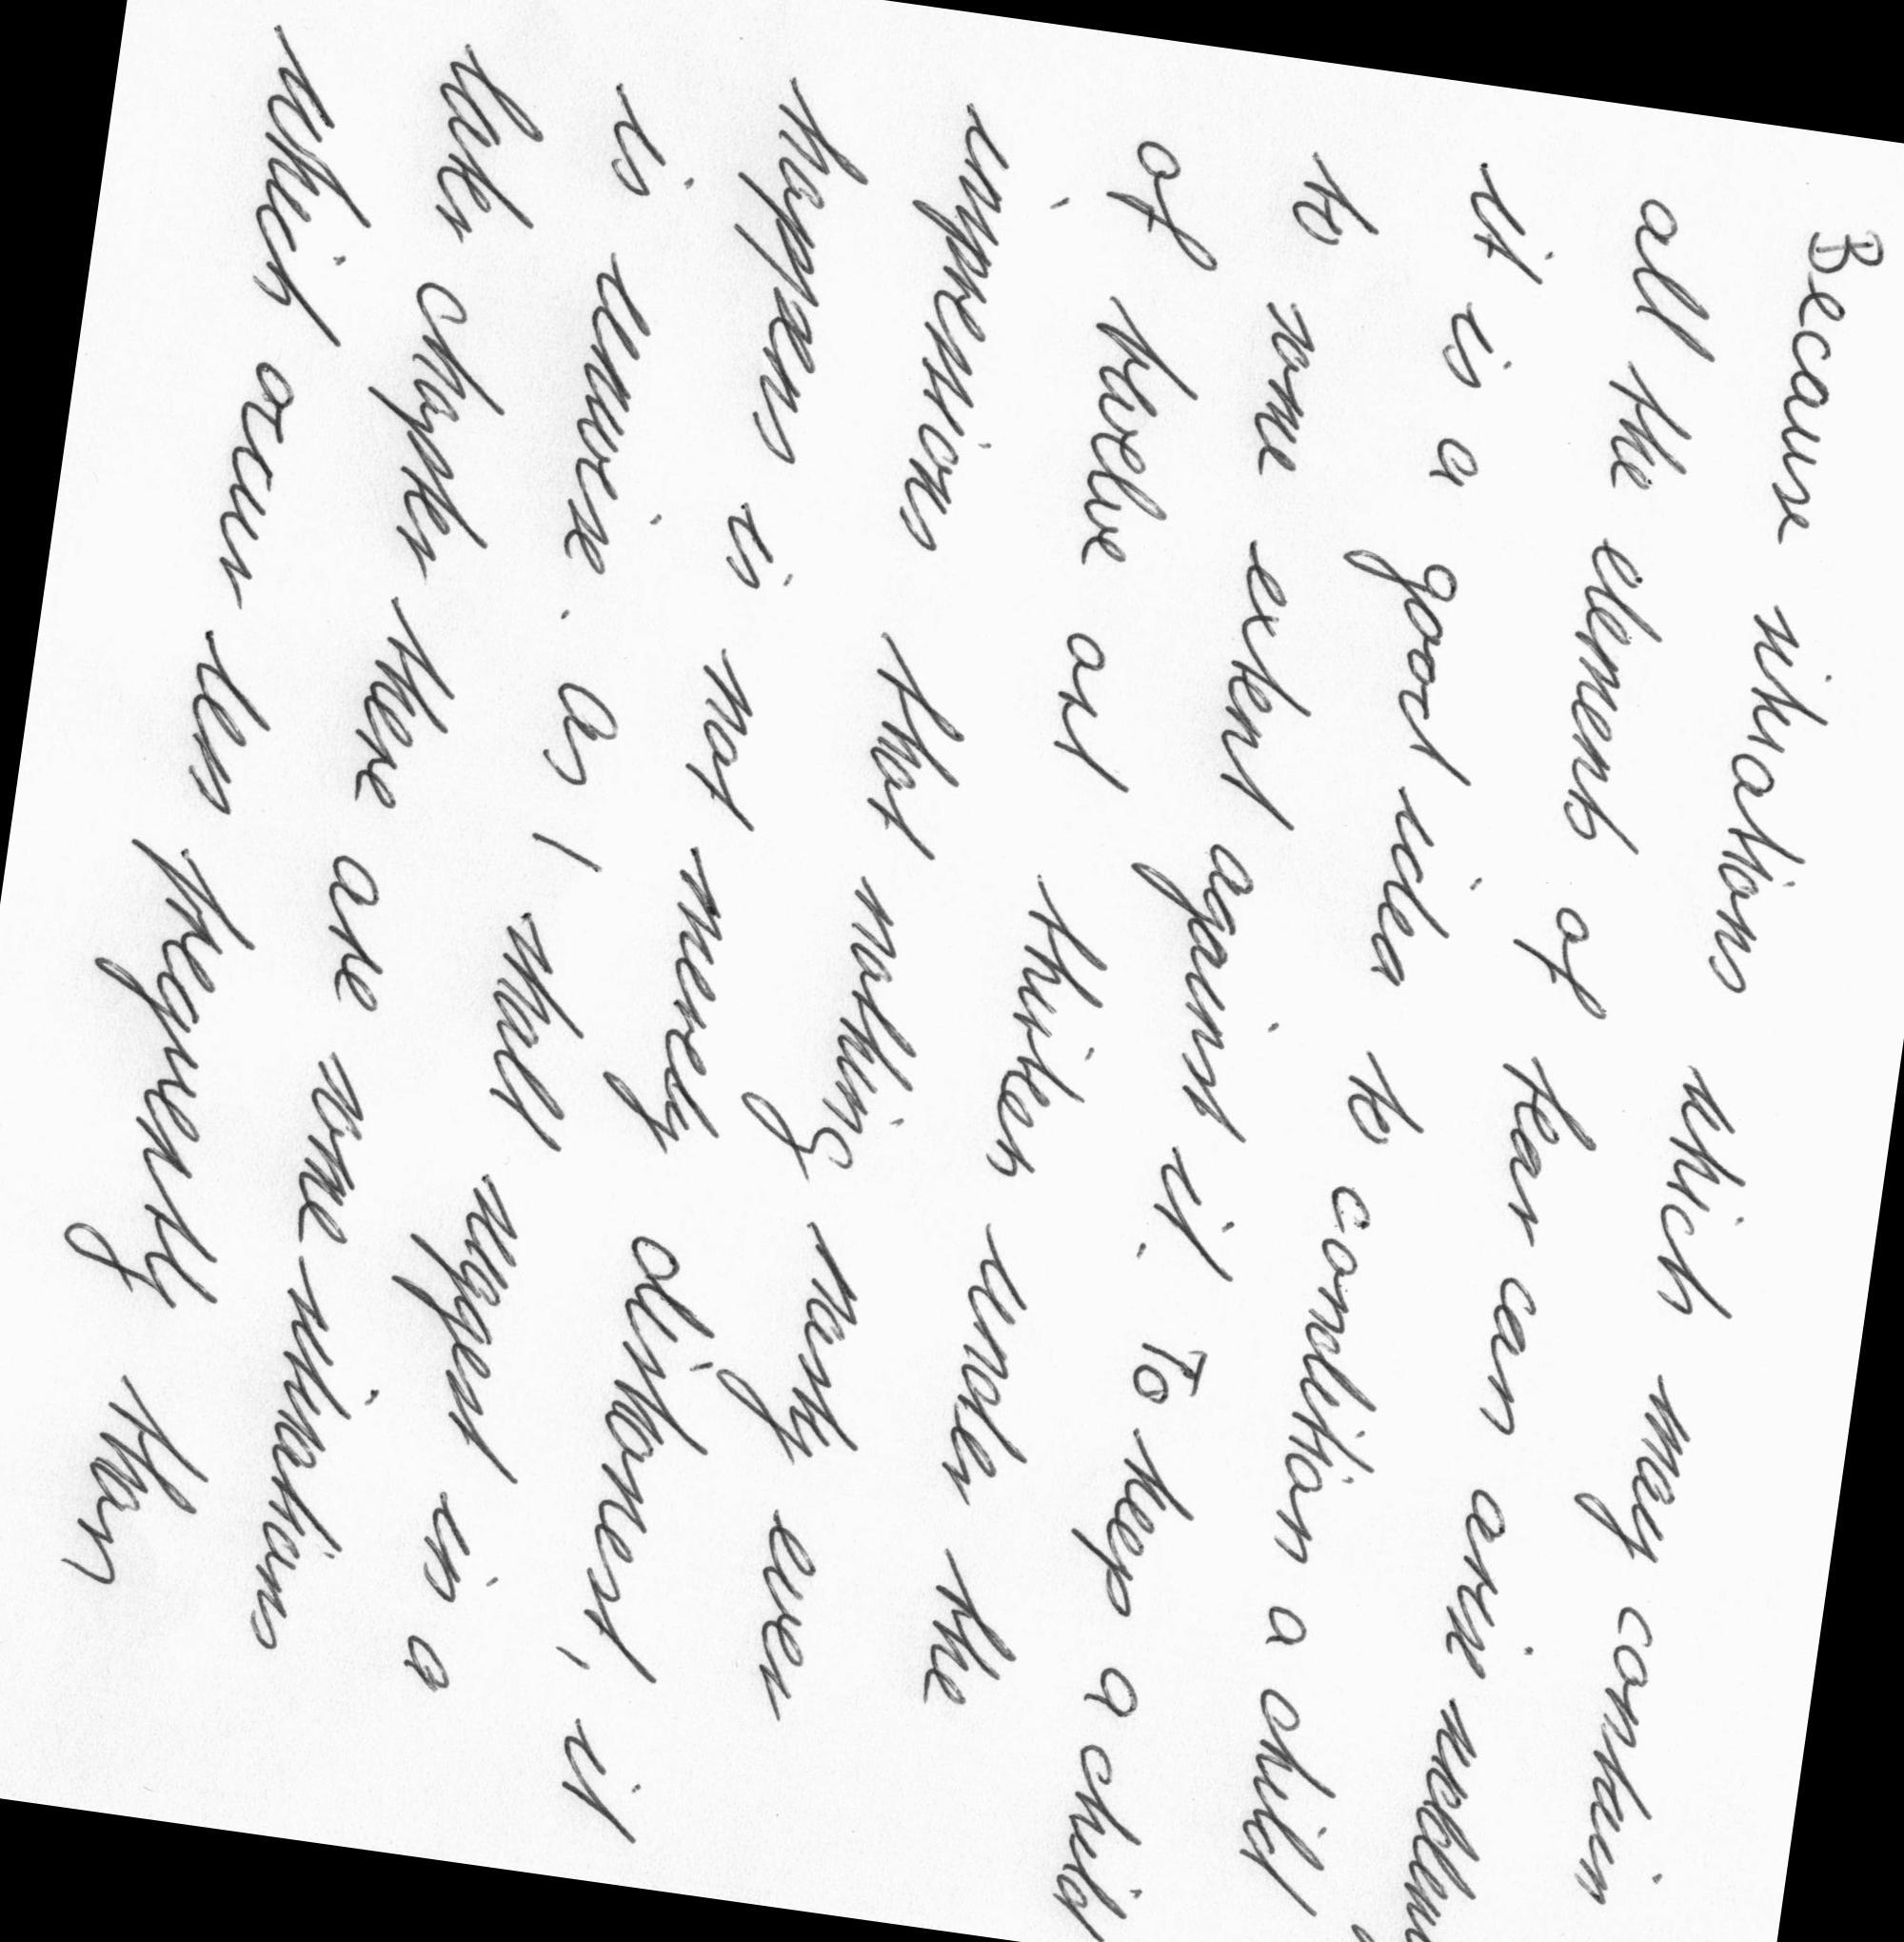 Because situations which may contain
all the elements of fear can arise suddenly
it is a good idea to condition a child
to some extent against it. To keep a child
of twelve or thirteen under the
impressions that nothing nasty ever
happens is not merely dishonest, it
is unwise. as I shall suggest in a
later chapter there are some situations
which occur less frequently than